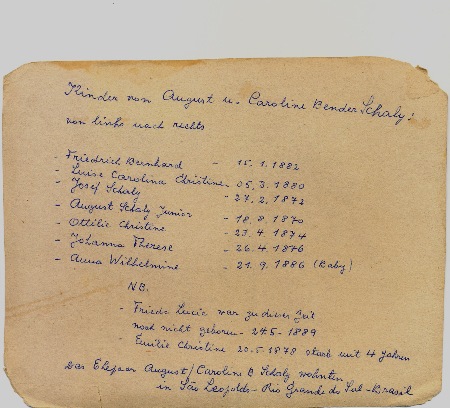 Kinder von August u. Caroline Bender Schaly:
von links nach rechts
- Friedrich Bernhard - 15.1.1882
- Luise Carolina Christine - 05.3.1880
- Josef Schaly - 27.2.1872
- August Schaly Junior - 18.8.1870
- Ottilie Christine - 23.4.1874
- Johanna Therese - 26.4.1876
- Anna Wilhelmine - 21.9.1886 (Baby)
NB.
- Frieda Lucie war zu dieser Zeit
noch nicht geboren - 24.5-1889
- Emilie Christine 20-5-1878 starb mit 4 Jahren
Das Ehepaar August/Caroline B. Schaly wohnten
in São Leopoldo - Rio Grande do Sul - Brasil